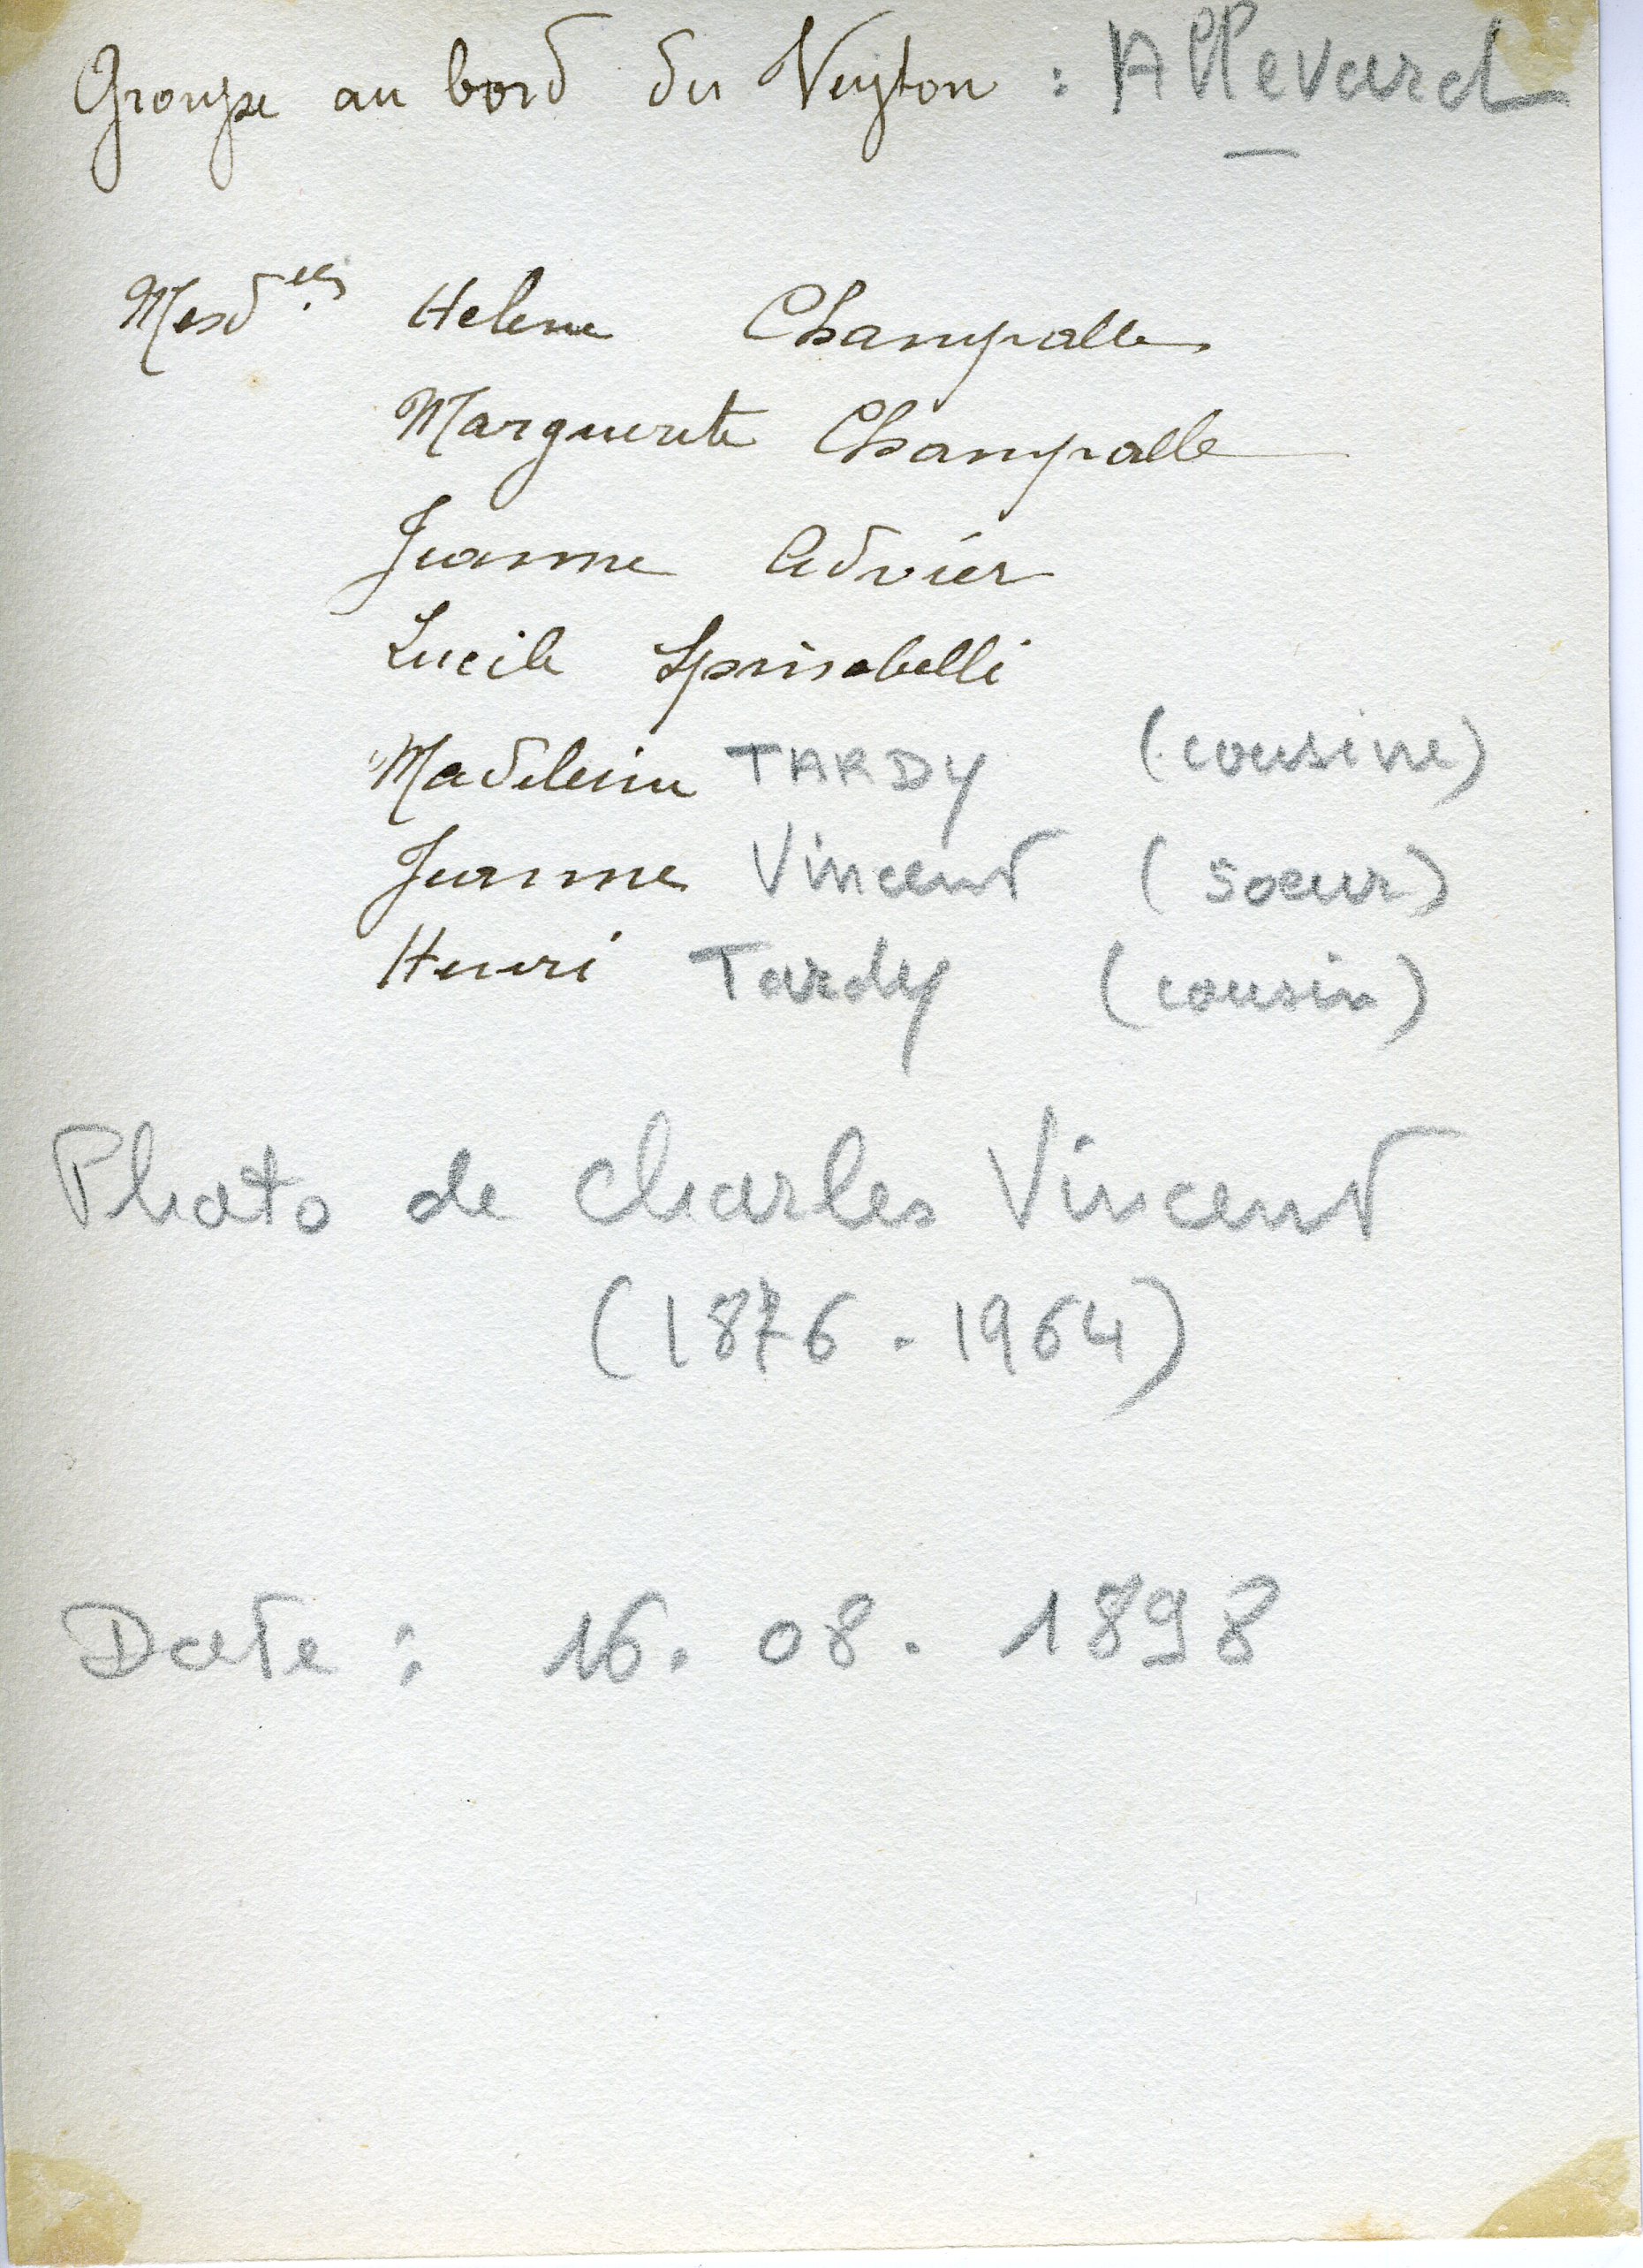 Groupe au bord du Veyton : Allevard
Mesd^elles Helene Champalle
Marguerite Champalle
Jeanne Advier
Lucile
Madeleine TARDY (cousine)
Jeanne Vincent (soeur)
Henri Tardy (cousin)
Photo de Charles Vincent
(1876 . 1964)
Date : 16. 08. 1898